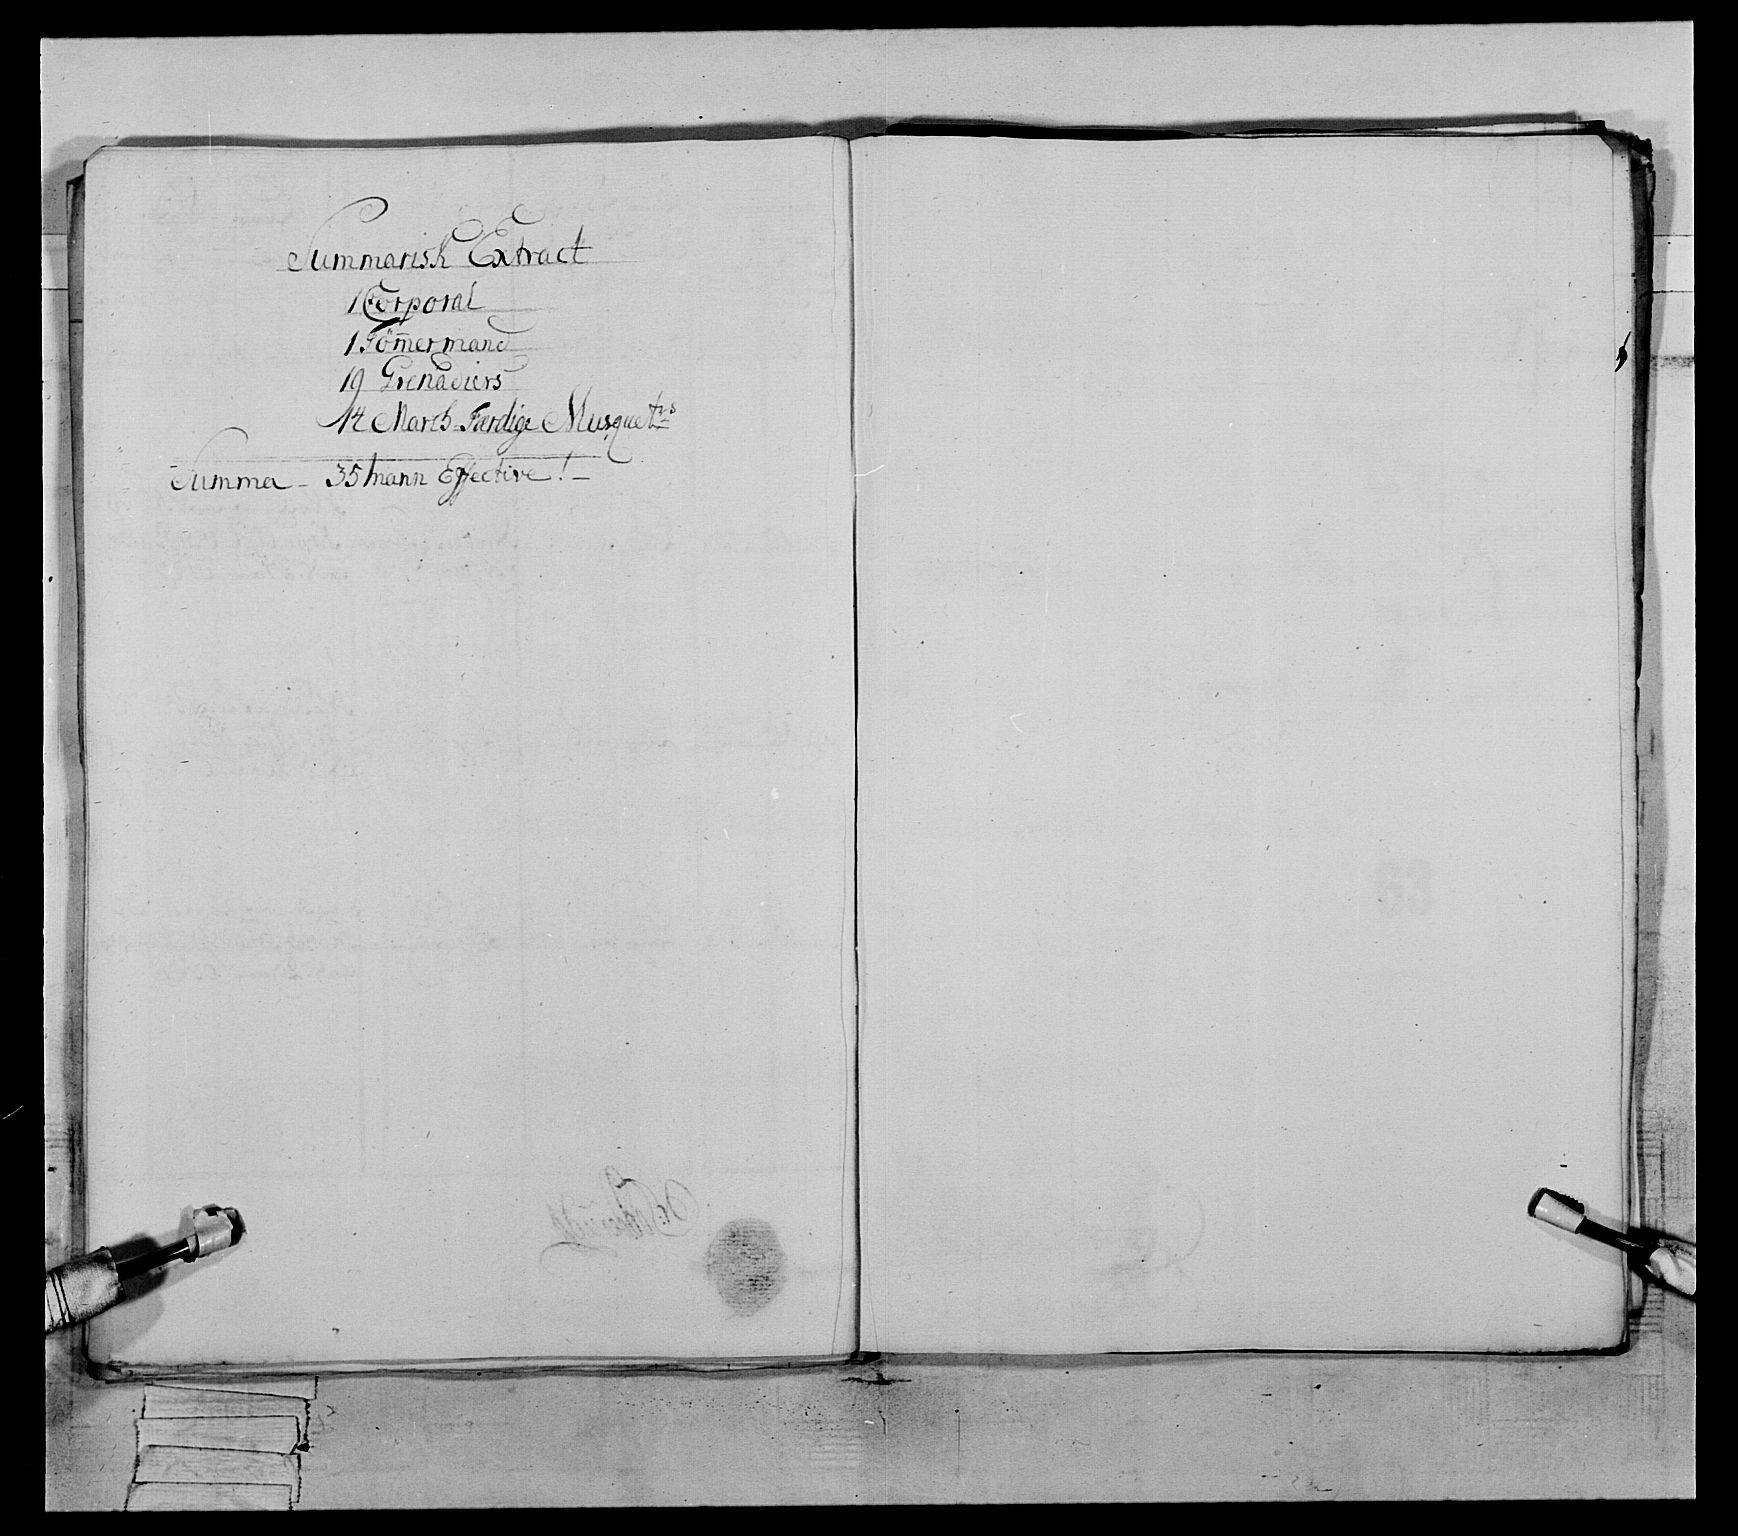 Summarisk Extract
1 Corporal
1 Tömermand
19 Grenadiers
14 March-Færdige Musquetrs
Summa - 35 mann Effective! -